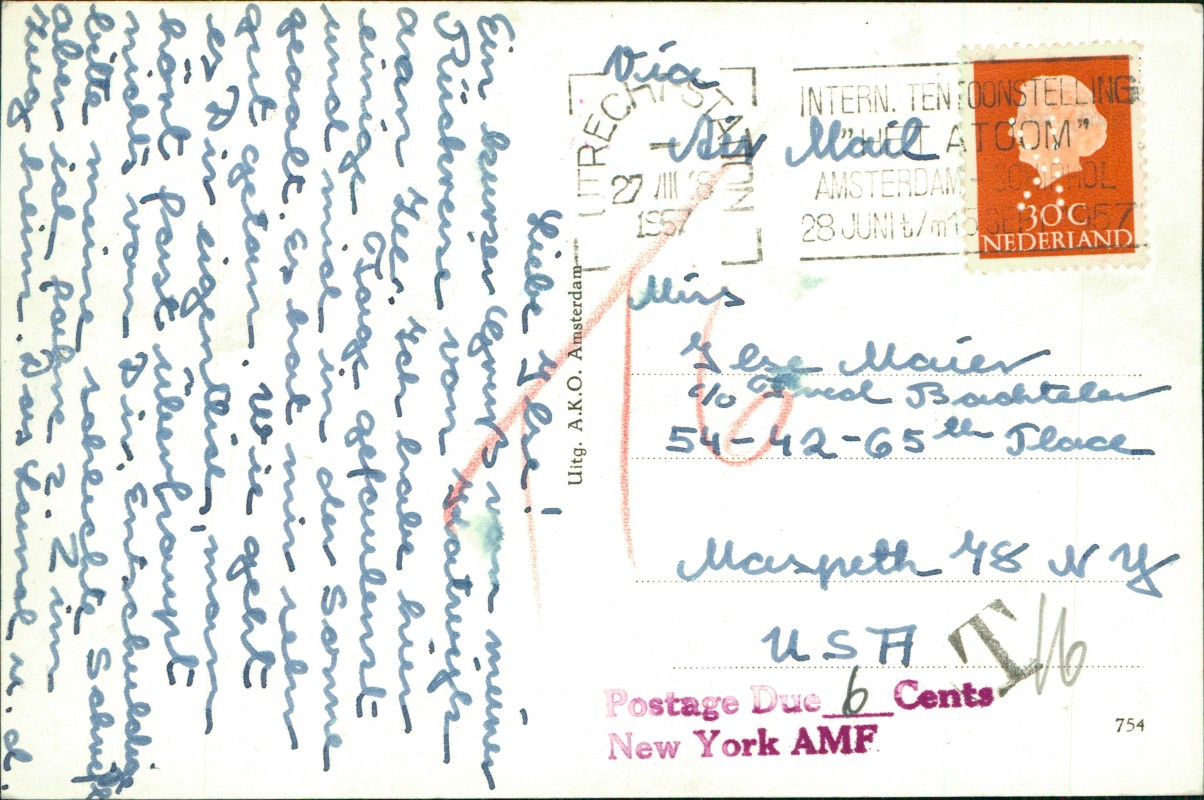 Liebe Ilse!
Ein kurzer Gruß von meiner
Rückreise von
am See. Ich habe hier
einige Tage gefaulenzt
und mich in der Sonne
geaalt. Es hat mir sehr
gut getan. Wie geht
es Dir eigentlich, man
hört fast überhaupt
nichts von Dir. Entschuldige
bitte meine schlechte Schrift
aber ich fahre z. Z. im
Zug heim. Das kannst u. d.
Uitg. A.K.O. Amsterdam
Via
Air Mail
UTRECHT STATION
27 VIII
1957
INTERN. TENTOONSTELLING
"HET ATOOM"
AMSTERDAM - SCHIPHOL
28 JUNI t/m 15 SEPT 1957
30 C
NEDERLAND
Miss
Ilse Maier
c/o Fred Bachteler
54-42-65th Place
Maspeth 78 N Y
USA
T 16
16
Postage Due 6 Cents
New York AMF
754